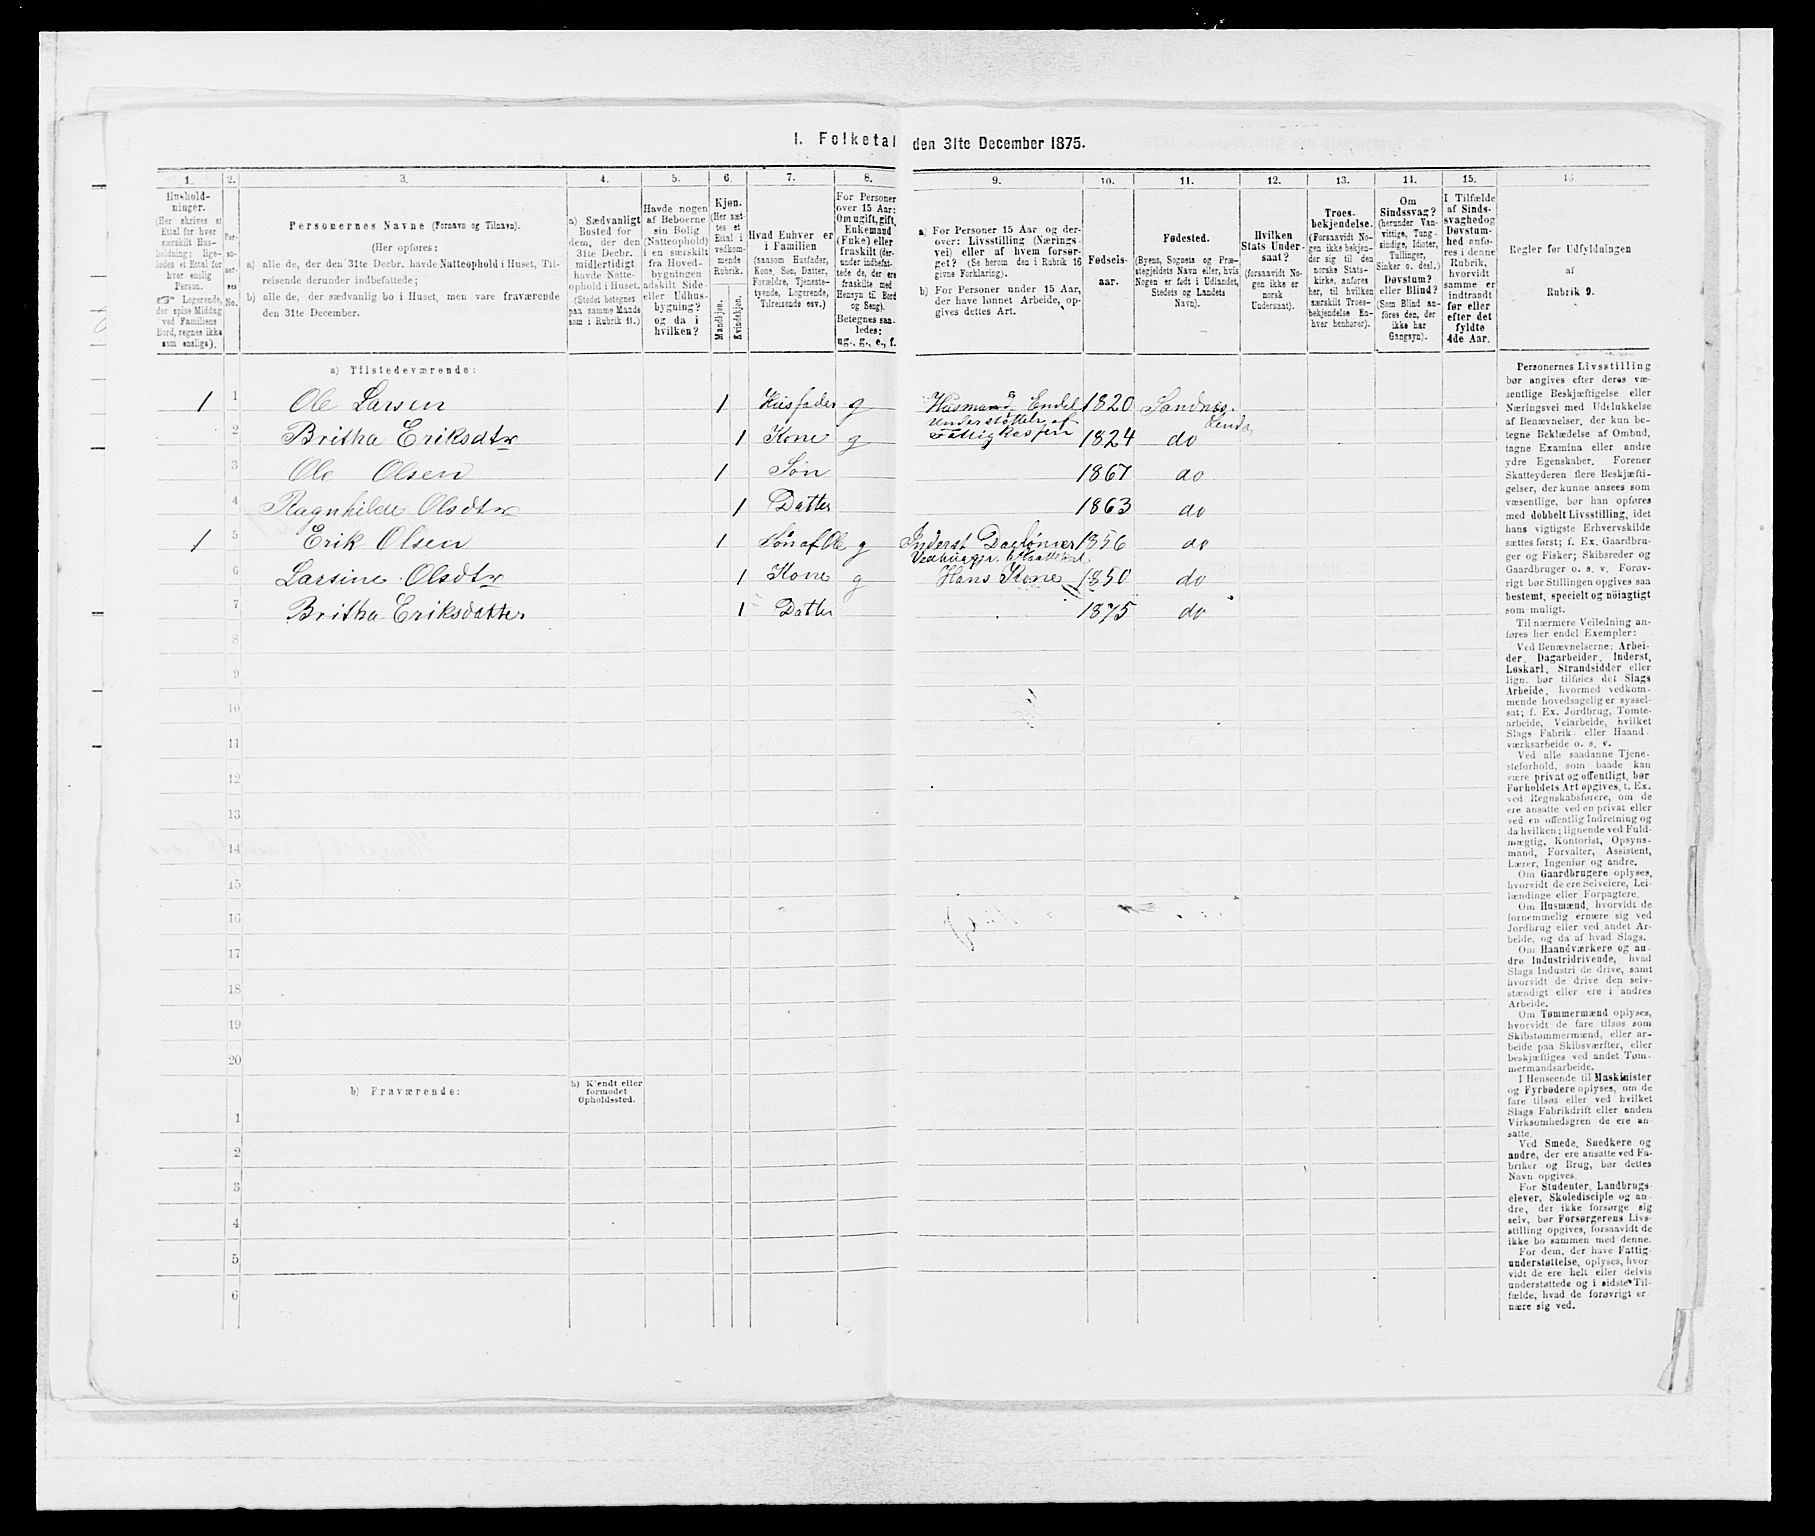 1. Folketal den 31te December 1875.
1.
2.
3.
4.
5.
6.
7.
8.
9.
10.
11.
12.
13.
14.
15.
16.
Hushold-
ninger.
(Her skrives et
Ettal for hver
særskilt Hus-
holdning; lige-
ledes et Ettal for
hver enslig
Person.
☞ Logerende,
der spise Middag
ved Familiens
Bord, regnes ikke
som enslige).
Per-
so-
ner-
nes
No.
Personernes Navne (Fornavn og Tilnavn).
(Her opføres:
a) alle de, der den 31te Decbr. havde Natteophold i Huset, Til-
reisende derunder indbefattede;
b) alle de, der sædvanlig bo i Huset, men vare fraværende
den 31te December.
a) Sædvanligt
Bosted for
dem, der den
31te Decbr.
midlertidigt
havde Natte-
ophold i Huset.
(Stedet betegnes
paa samme Maade
som i Rubrik 11.)
Havde nogen
af Beboerne
sin Bolig
(Natteophold)
i en særskilt
fra Hoved-
bygningen
adskilt Side-
eller Udhus-
bygning?
og da i
hvilken?
Kjøn.
(Her sæt-
tes et
Ettal i
vedkom-
mende
Rubrik.
Mandkjøn.
Kvindekjøn.
Hvad Enhver er
i Familien
(saasom Husfader,
Kone, Søn, Datter,
Forældre, Tjeneste-
tyende, Logerende,
Tilreisende osv.)
For Personer
over 15 Aar:
Om ugift, gift,
Enkemand
(Enke) eller
fraskilt (der-
under indbefat-
tede de, der ere
fraskilte med
Hensyn til Bord
og Seng).
Betegnes saa-
ledes:
ug., g., e., f.
a) For Personer 15 Aar og der-
over: Livsstilling (Nærings-
vei) eller af hvem forsør-
get? (Se herom den i Rubrik 16
givne Forklaring).
b) For Personer under 15 Aar,
der have lønnet Arbeide, op-
gives dettes Art.
Fødsels-
aar.
Fødested.
(Byens, Sognets og Præ-
stegjeldets Navn eller, hvis
Nogen er født i Udlandet,
Stedets og Landets
Navn).
Hvilken
Stats Under-
saat?
(forsaavidt No-
gen ikke er
norsk
Undersaat).
Troes-
bekjendelse.
(Forsaavidt No-
gen ikke bekjen-
der sig til den
norske Stats-
kirke, anføres
her, til hvilken
særskilt Troes-
bekjendelse En-
hver henhører).
Om
Sindssvag?
(herunder Van-
vittige, Tung-
sindige, Idioter,
Tullinger,
Sinker o. desl.)
Døvstum?
eller Blind?
(Som Blind an-
føres den, der
ikke har
Gangsyn).
I Tilfælde
af Sinds-
svaghed og
Døvstum-
hed anfø-
res i denne
Rubrik,
hvorvidt
samme er
indtraadt
før eller
efter det
fyldte
4de Aar.
Regler for Udfyldningen
af
Rubrik 9.
a) Tilstedeværende:
1 1 Ole Larsen 1 Husfader g Husmand Endel 1820 Sandnæs
understøttelse af Lunda
2 Britha Eriksdtr 1 Kone g Fattigkassen 1824 do
3 Ole Olsen 1 Søn 1867 do
4 Ragnhilde Olsdtr 1 Datter 1863 do
1 5 Erik Olsen 1 Søn af Ole g Inderst Daglønner 1856 do
6 Larsine Olsdtr 1 Kone g Hans Kone 1850 do
7 Britha Eriksdatter 1 Datter 1875 do
8
9
10
11
12
13
14
15
16
17
18
19
20
b) Fraværende:
b) Kjendt eller
formodet
Opholdssted.
1
2
3
4
5
6
Personernes Livsstilling
bør angives efter deres væ-
sentlige Beskjæftigelse eller
Næringsvei med Udelukkelse
af Benævnelser, der kun be-
tegne Beklædelse af Ombud,
tagne Examina eller andre
ydre Egenskaber. Forener
Skatteyderen flere Beskjæfti-
gelser, der kunne ansees som
væsentlige, bør han opføres
med dobbelt Livsstilling, idet
hans vigtigste Erhvervskilde
sættes først; f. Ex. Gaardbru-
ger og Fisker; Skibsreder og
Gaardbruger o. s. v. Forøv-
rigt bør Stillingen opgives saa
bestemt, specielt og nøiagtigt
som muligt.
Til nærmere Veiledning an-
føres her endel Exempler:
Ved Benævnelserne: Arbei-
der, Dagarbeider, Inderst,
Løskarl, Strandsidder eller
lign. bør tilføies det Slags
Arbeide, hvormed vedkom-
mende hovedsagelig er syssel-
sat; f. Ex. Jordbrug, Tomte-
arbeide, Veiarbeide, hvilket
Slags Fabrik- eller Haand-
værksarbeide o. s. v.
Ved alle saadanne Tjene-
steforhold, som baade kan
være privat og offentligt, bør
Forholdets Art opgives, t. Ex.
ved Regnskabsførere, om de
ere ansatte ved en privat eller
ved en offentlig Indretning og
da hvilken; lignende ved Fuld-
mægtig, Kontorist, Opsyns-
mand, Forvalter, Assistent,
Lærer, Ingeniør og andre.
Om Gaardbrugere oplyses,
hvorvidt de ere Selveiere, Lei-
lændinge eller Forpagtere.
Om Husmænd, hvorvidt de
fornemmelig ernære sig ved
Jordbrug eller ved andet Ar-
beide, og da af hvad Slags.
Om Haandværkere og an-
dre Industridrivende, hvad
Slags Industri de drive, samt
hvorvidt de drive den selv-
stændigt eller ere i andres
Arbeide.
Om Tømmermænd oplyses,
hvorvidt de fare tilsøs som
Skibstømmermænd, eller ar-
beide paa Skibsværfter, eller
beskjæftiges ved andet Tøm-
mermandsarbeide.
I Henseende til Maskinister
og Fyrbødere oplyses, om de
fare tilsøs eller ved hvilket
Slags Fabrikdrift eller anden
Virksomhedsgren de ere an-
satte.
Ved Smede, Snedkere og
andre, der ere ansatte ved Fa-
briker og Brug, bør dettes
Navn opgives.
For Studenter, Landbrugs-
elever, Skoledisciple og an-
dre, der ikke forsørge sig
selv, bør Forsørgerens Livs-
stilling opgives, forsaavidt de
ikke bo sammen med denne.
For dem, der have Fattig-
understøttelse, oplyses, hvor-
vidt de ere helt eller delvis
understøttede og i sidste Til-
fælde, hvad de forøvrigt er-
nære sig ved.